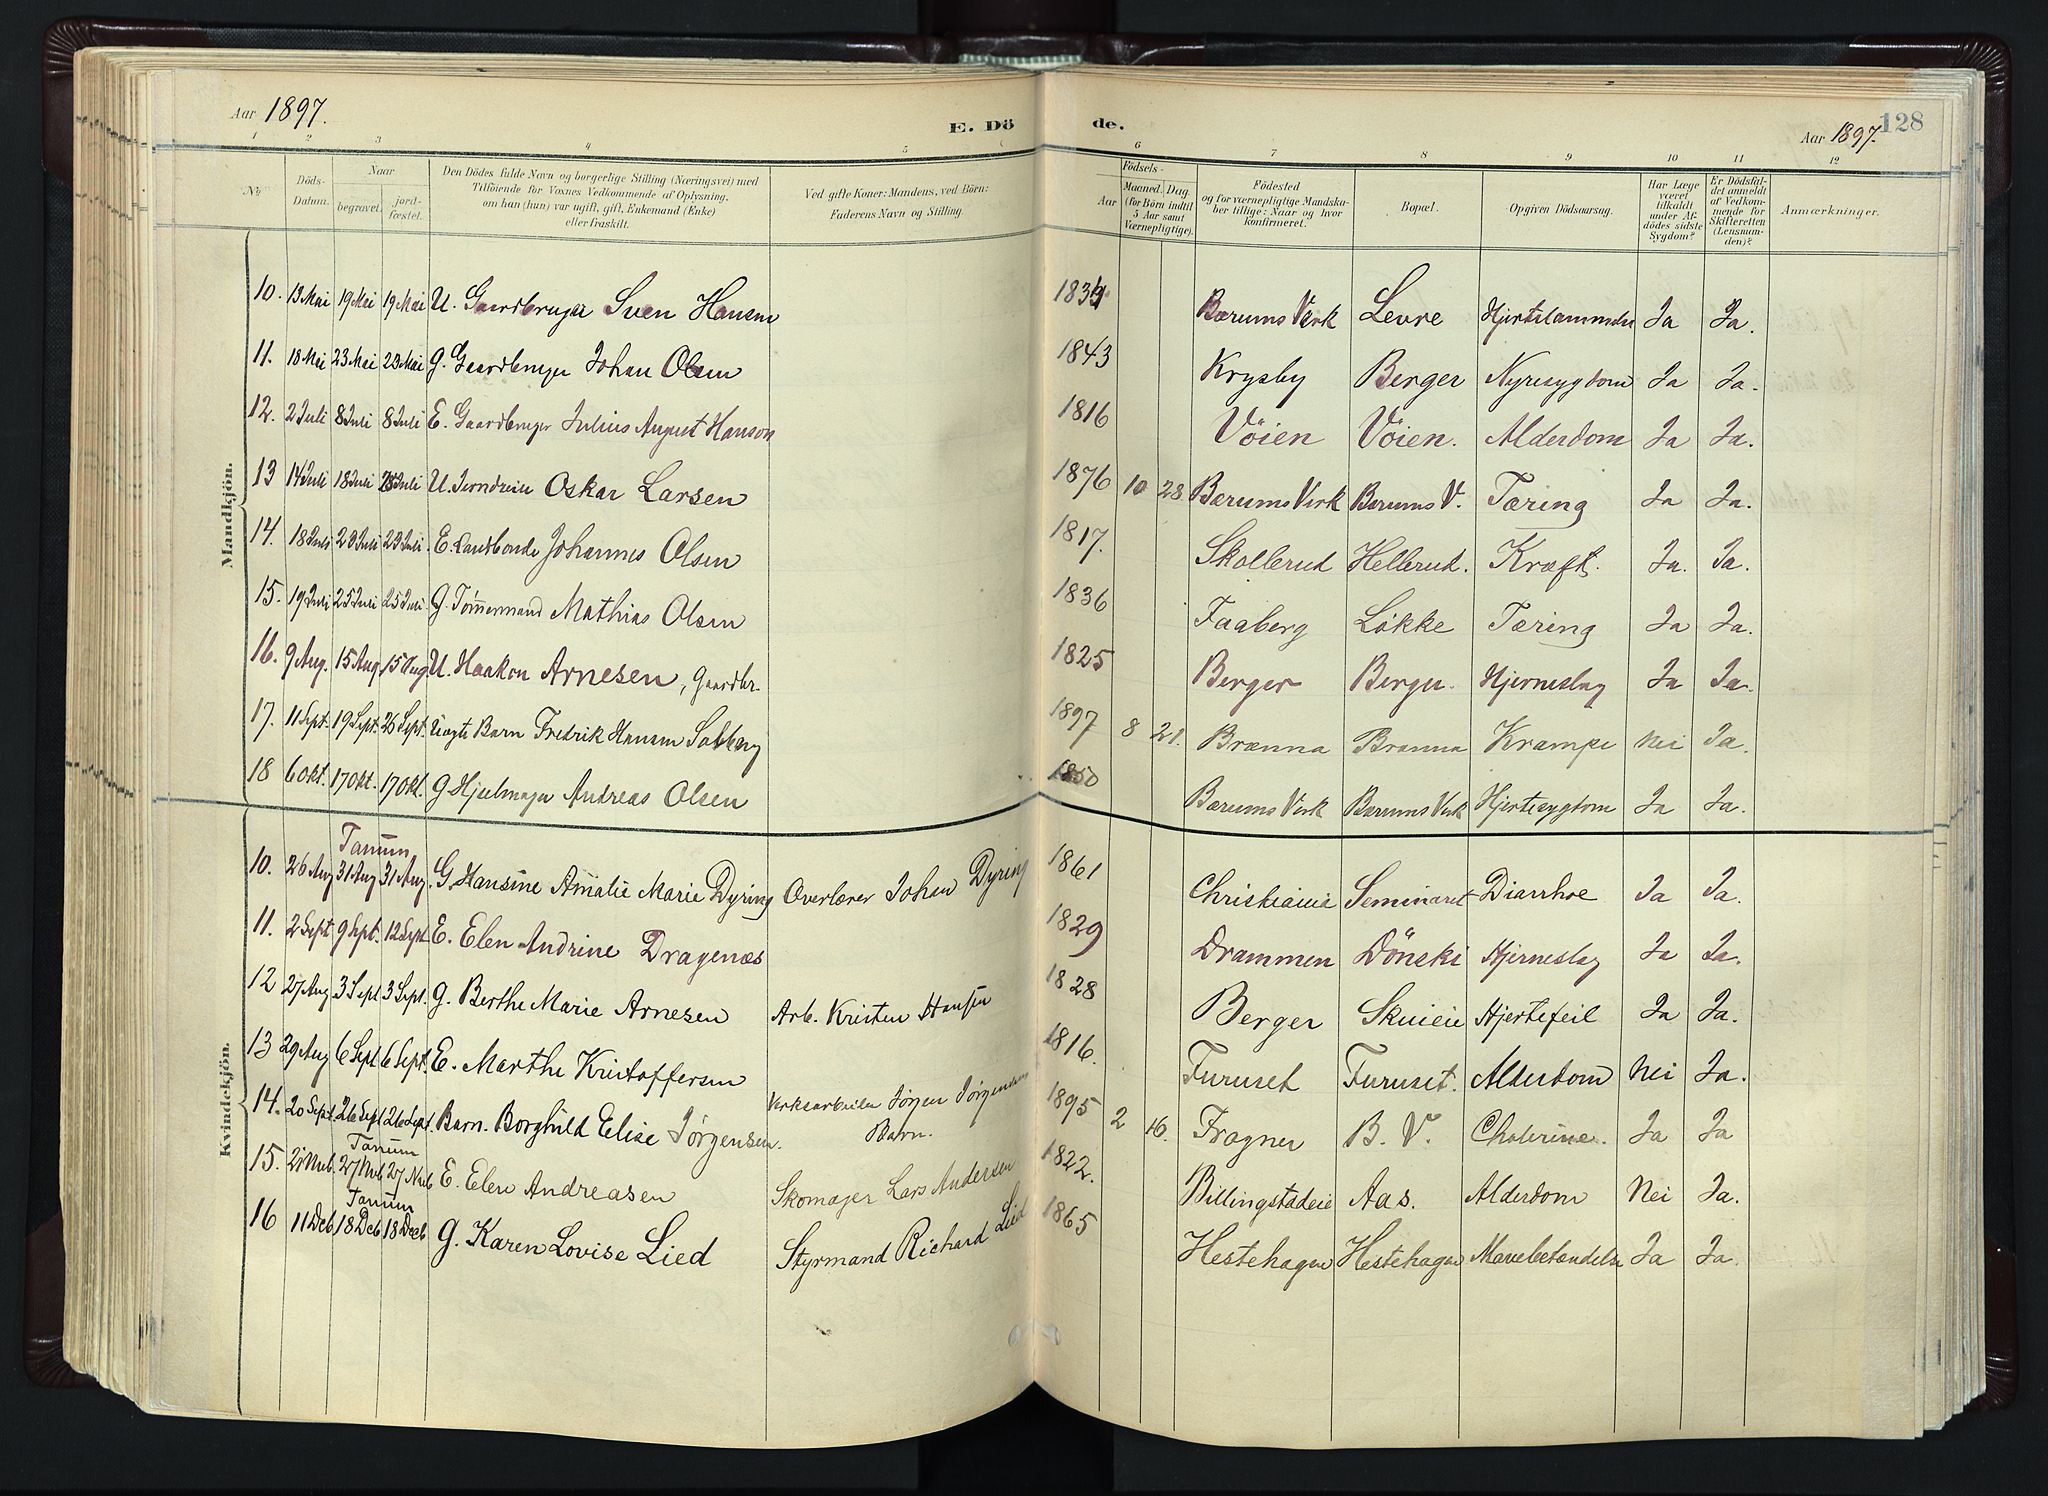 Aar 1897.
E. Dö
de.
128
Aar 1897.
1 2 3 4 5 6 7 8 9 10 11 12
No
Döds-Datum.
Naar
begravet.
jordfæstet.
Den Dödes fulde Navn og borgerlige Stilling (Næringsvei) med
Tilföiende for Voxnes Vedkommende af Oplysning,
om han (hun) var ugift, gift, Enkemand (Enke)
eller fraskilt.
Ved gifte Koner: Mandens, ved Börn:
Faderens Navn og Stilling.
Födsels-
Aar
Maaned. Dag.
(for Börn indtil
5 Aar samt
Værnepligtige).
Födested
og for værnepligtige Mandska-
ber tillige: Naar og hvor
konfirmeret.
Bopæl.
Opgiven Dödsaarsag.
Har Læge
været
tilkaldt
under Af-
dödes sidste
Sygdom?
Er Dödsfal-
det anmeldt
af Vedkom-
mende for
Skifteretten
(Lensman-
den)?
Anmærkninger.
Mandkjön.
10. 13 Mai 19 Mai 19 Mai U. Gaardbruger Sven Hansen 1834 Bærums Verk Levre Hjertelammelse Ja Ja.
11. 18 Mai 23 Mai 23 Mai G. Gaardbruger Johan Olsen 1843 Krysby Berger Nyresygdom Ja Ja.
12. 2 Juli 8 Juli 8 Juli E. Gaardbruger Julius August Hanson 1816 Vöien Vöien. Alderdom Ja Ja.
13 14 Juli 18 Juli 25 Juli U. Jerndreier Oskar Larsen 1876 10 28 Bærums Verk Bærums V. Tæring Ja Ja.
14. 18 Juli 23 Juli 23 Juli E. Landbonde Johannes Olsen 1817. Skollerud Hellerud. Kræft. Ja. Ja.
15. 19 Juli 25 Juli 25 Juli G. Tømmermand Mathias Olsen 1836 Faaberg Løkke Tæring Ja Ja.
16. 9 Aug. 15 Aug 15 Aug U. Haakon Arnesen, Gaardbr. 1825 Berger Berger. Hjerneslag Ja Ja.
17. 11 Sept. 19 Sept. 26 Sept. Uægte Barn Fredrik Hansen Solberg 1897 8 21. Brænna Brænna Krampe Nei Ja.
18 6 Okt. 17 Okt. 17 Okt. G Hjulmager Andreas Olsen 1850 Bærums Verk Bærums Verk Hjertesygdom Ja Ja.
Kvindekjön.
Tanum
10. 26 Aug 31 Aug 31 Aug. G Hansine Amalie Marie Dyring Overlærer Johan Dyring 1861 Christiania Seminaret Diarrhoe Ja Ja.
11. 2 Sept 9 Sept. 12 Sept E. Elen Andrine Dragenæs 1829 Drammen Dönski Hjerneslag Ja Ja.
12 27 Aug 3 Sept 3 Sept. G. Berthe Marie Arnesen Arb. Kristen Hansen 1828 Berger Skuieie Hjertefeil Ja Ja.
13 29 Aug 6 Sept 6 Sept. E. Marthe Kristoffersen 1816. Furuset Furuset. Alderdom Nei Ja.
14. 20 Sept. 26 Sept 26 Sept. Barn. Borghild Elise Jørgensen. Verksarbeider Jørgen Jørgensens Barn. 1895 2 16. Fragner B. V. Cholerine. Ja Ja
Tanum
15. 21 Nvb. 27 Nvb 27 Nvb E. Elen Andreasen Skomager Lars Andersen 1822. Billingstadeie Aas. Alderdom Nei Ja.
Tanum
16 11 Dcb 18 Dcb 18 Dcb G. Karen Lovise Lied Styrmand Richard Lied 1865 Hestehagen Hestehagen Mavebetændelse Ja Ja.